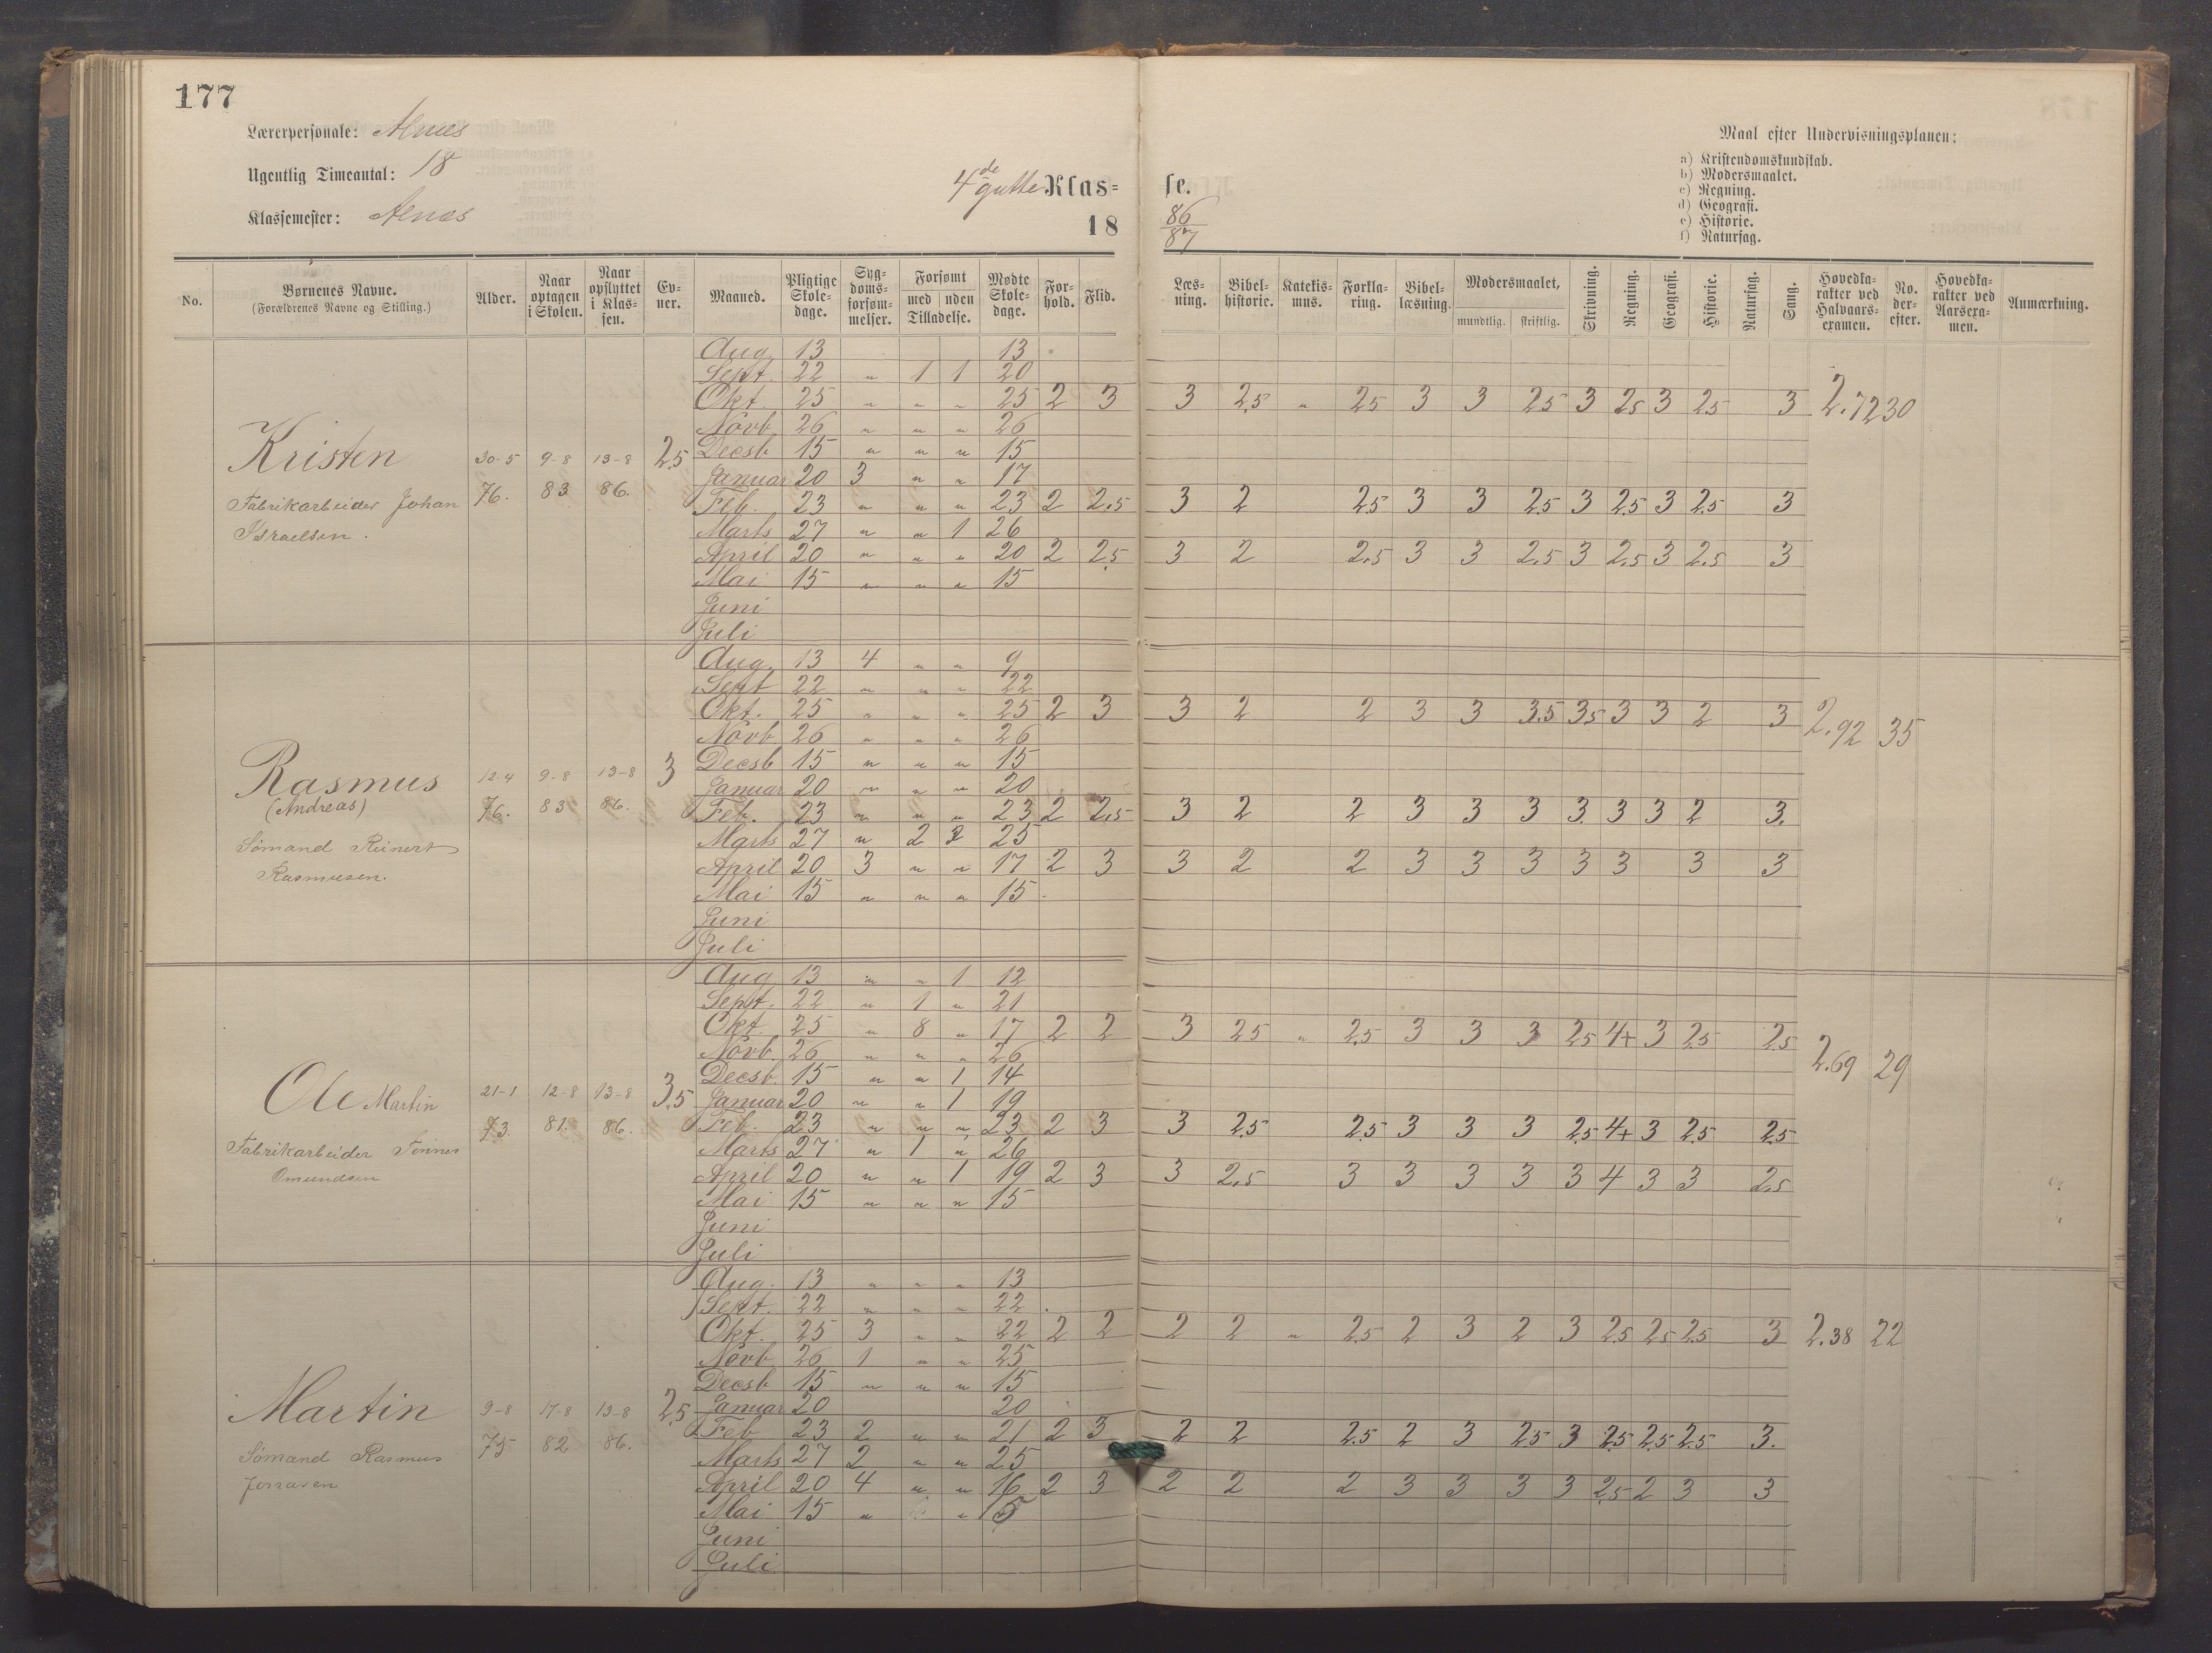 177
Lærerpersonale: Alnæs
Ugentlig Timeantal: 18
Klassemester: Alnæs
4de gutte Klas=
18
se.
86
87
Maal efter Undervisningsplanen:
a) Kristendomskundskab.
b) Modersmaalet.
c) Regning.
d) Geografi.
e) Historie.
f) Naturfag.
No. Børnenes Navne. (Forældrenes Navne og Stilling.) Alder. Naar optagen i Skolen. Naar opflyttet i Klas=sen. Ev=ner. Maaned. Pligtige Skole=dage. Syg=doms=forsøm=melser. Forsømt med uden Tilladelse. Mødte Skole=dage. For=hold. Flid. Læs=ning. Bibel=historie. Katekis=mus. Forkla=ring. Bibel=læsning. Modersmaalet, mundtlig. skriftlig. Skrivning. Regning. Geografi. Historie. Naturfag. Sang. Hovedka=rakter ved Halvaars=examen. No. der=efter. Hovedka=rakter ved Aarsexa=men. Anmærkning.
Kristen
Fabrikarbeider Johan
Israelsen.
30-5 9-8 13-8 2.5
76. 83 86.
Aug. 13 13
Sept. 22 " 1 1 20
Okt. 25 " " " 25 2 3 3 2.5 " 2.5 3 3 2.5 3 2.5 3 2.5 3 2.72 30
Novb 26 " " " 26
Decsb 15 " " " 15
Januar 20 3 " " 17
Feb. 23 " " " 23 2 2.5 3 2 2.5 3 3 2.5 3 2.5 3 2.5 3
Marts 27 " " 1 26
April 20 " " " 20 2 2.5 3 2 2.5 3 3 2.5 3 2.5 3 2.5 3
Mai 15 " " " 15
Juni
Juli
Rasmus
(Andreas)
Sømand Reinert
Rasmusen.
12.4 9-8 13-8 3
76. 83 86.
Aug. 13 4 " " 9
Sept 22 " " " 22
Okt. 25 " " " 25 2 3 3 2 2 3 3 3.5 3.5 3 3 2 3 2.92 35
Novb 26 " " " 26
Decsb 15 " " " 15
Januar 20 " " " 20
Feb. 23 " " " 23 2 2.5 3 2 2 3 3 3 3. 3 3 2 3.
Marts 27 " 2 25
April 20 3 " " 17 2 3 3 2 2 3 3 3 3 3 3 3
Mai 15 " " " 15
Juni
Juli
Ole Martin
Fabrikarbeider Tønnes
Omundsen
21-1 12-8 13-8 3.5
73. 81. 86.
Aug 13 " " 1 12
Sept. 22 " 1 " 21
Okt. 25 " 8 " 17 2 2 3 2.5 " 2.5 3 3 3 2.5 4+ 3 2.5 2.5 2.69 29
Novb. 26 " " " 26
Decsb. 15 " " 1 14
Januar 20 " " 1 19
Feb. 23 " " " 23 2 3 3 2.5 2.5 3 3 3 2.5 4+ 3 2.5 2.5
Marts 27 " 1 " 26
April 20 " " 1 19 2 3 3 2.5 3 3 3 3 3 4 3 3 2.5
Mai 15 " " " 15
Juni
Juli
Martin
Sømand Rasmus
Jonasen
9-8 17-8 13-8 2.5
75 82 86.
Aug. 13 " " " 13
Sept. 22 " " " 22
Okt. 25 3 " " 22 2 2 2 2 " 2.5 2 3 2 3 2.5 2.5 2.5 3 2.38 22
Novb 26 1 " " 25
Decsb 15 " " " 15
Januar 20 20
Feb 23 2 " " 21 2 3 2 2 2.5 2 3 2.5 3 2.5 2.5 2.5 3.
Marts 27 2 " " 25
April 20 4 " " 16 2 3 2 2 2 3 3 3 3 2.5 2 3 3
Mai 15 " " 15
Juni
Juli